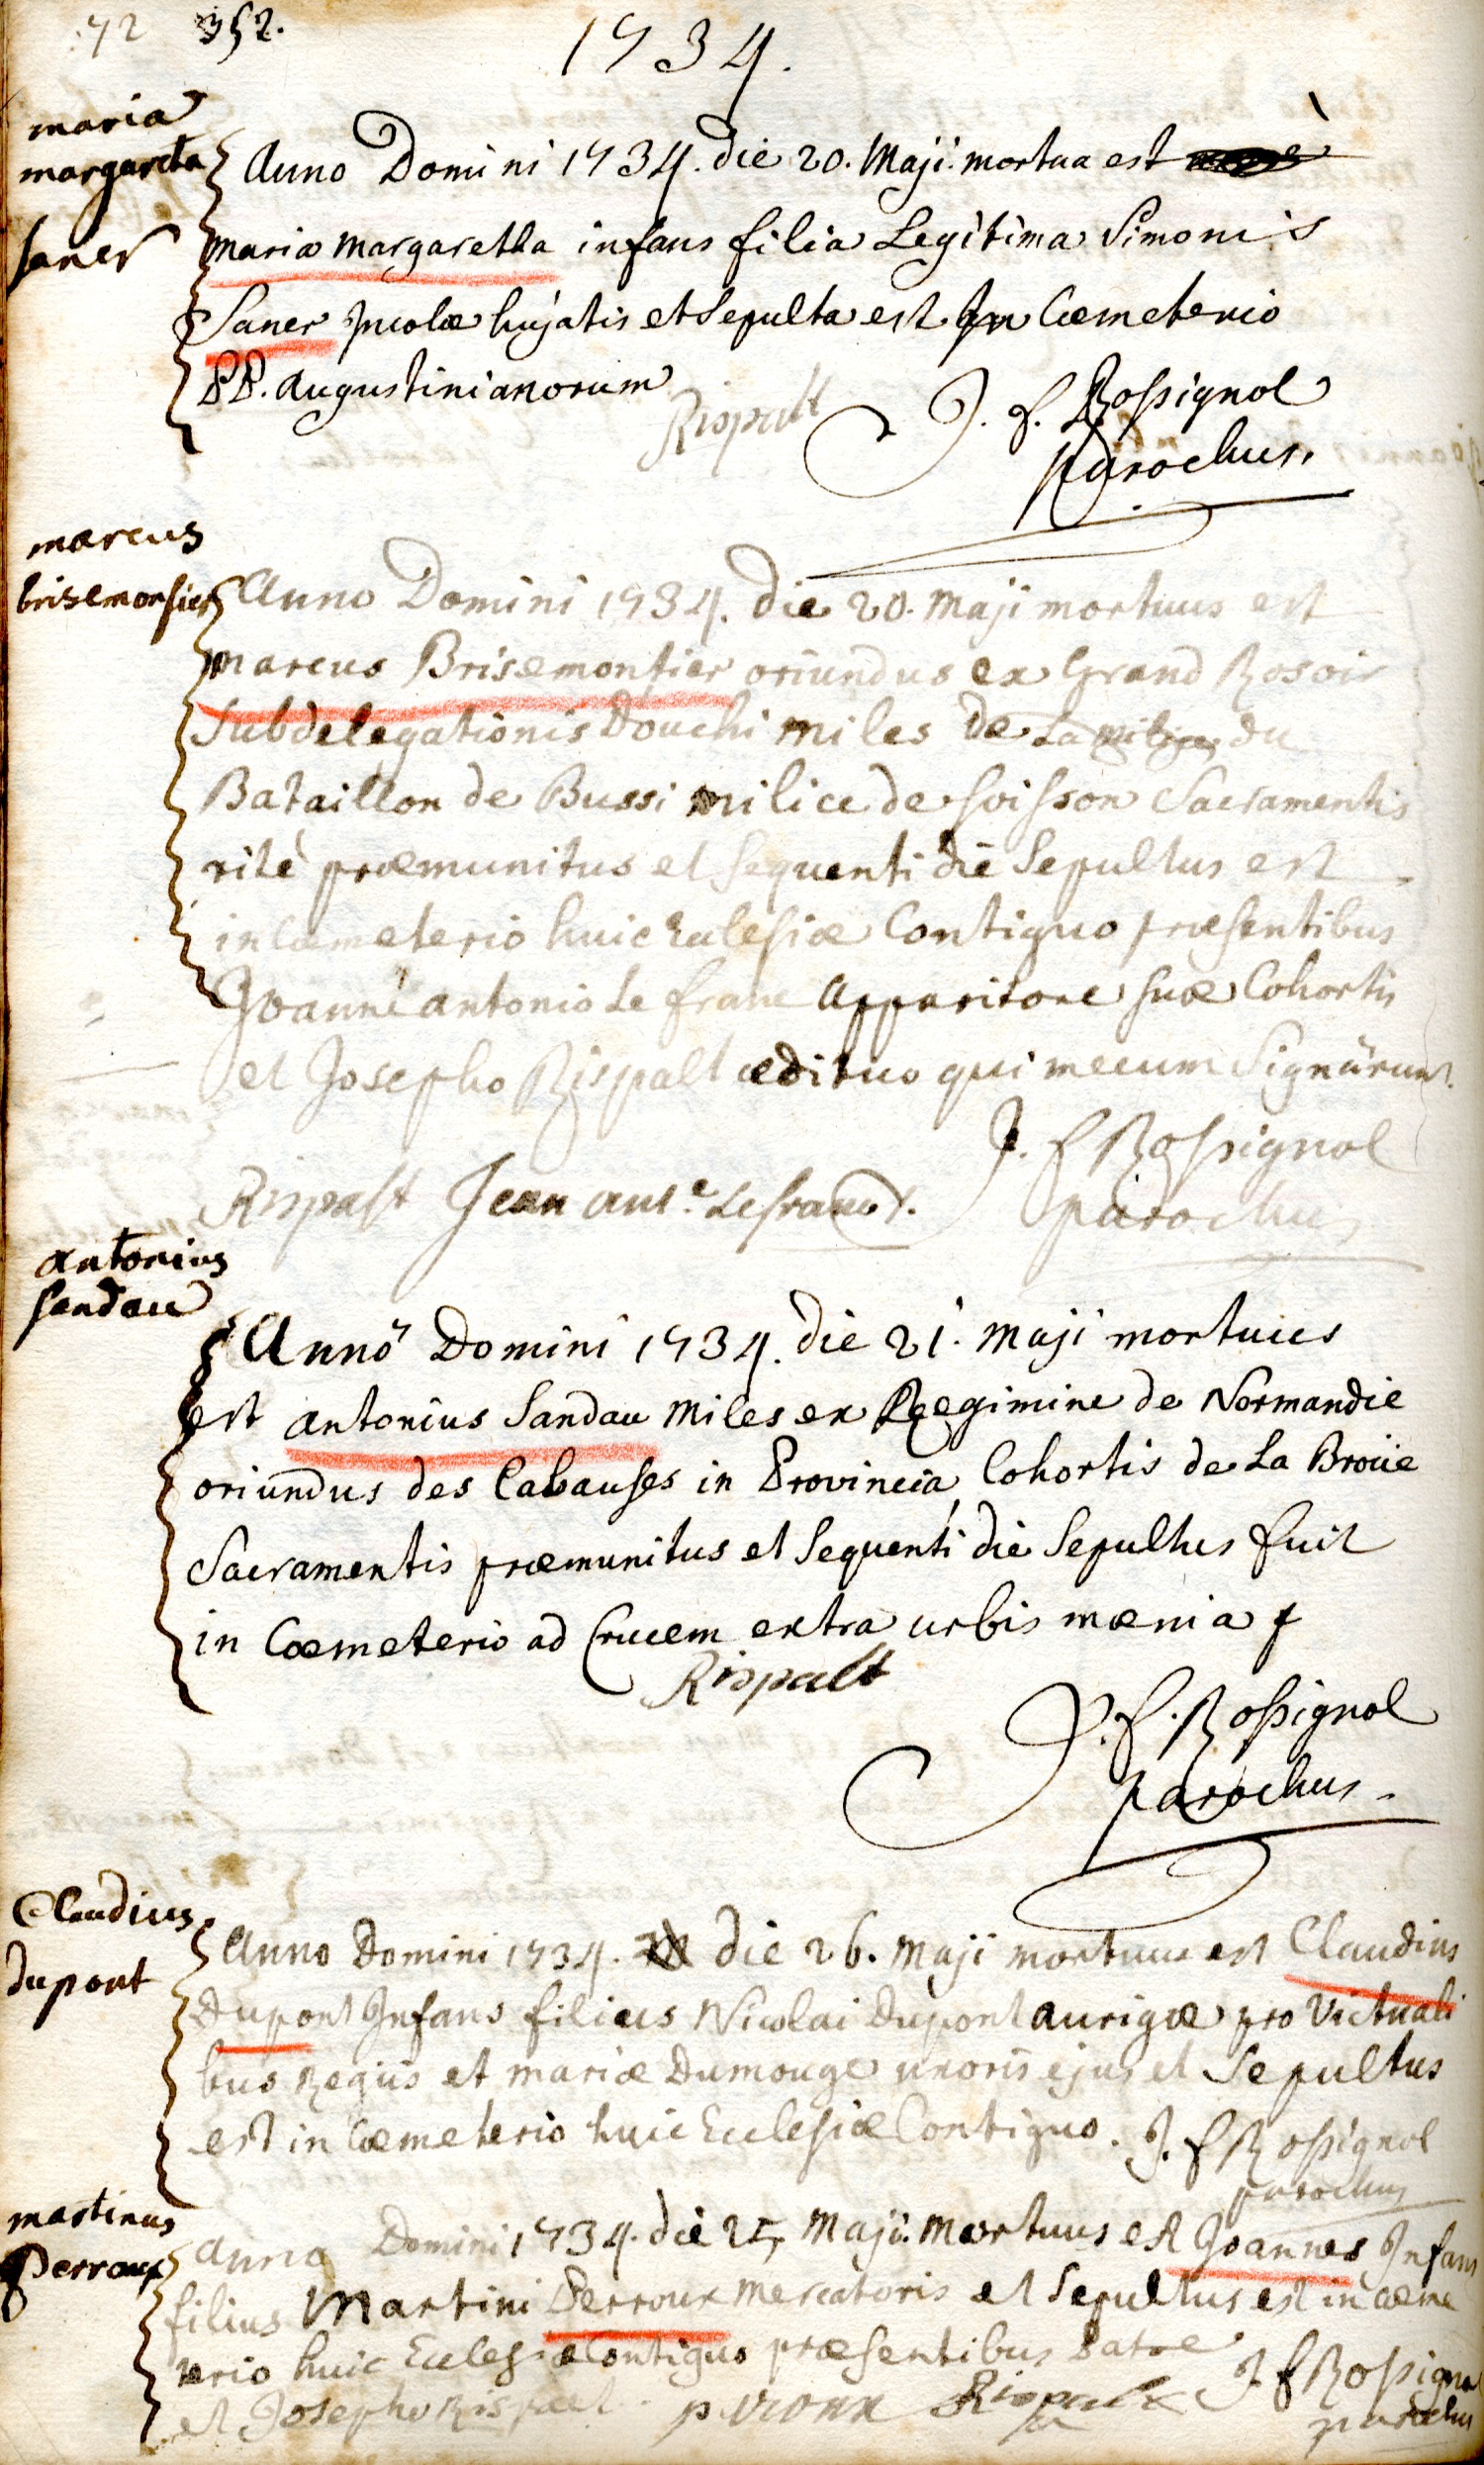 72 352.
1734.
maria
margareta
saner
Anno Domini 1734. die 20. Maji mortua est
maria margaretha infans filia Legitima Simonis
Saner Incolæ hujatis et Sepulta est In Cœmeterio
PP. Augustinianorum
Rispalt J. f. Rossignol
parochus.
marcus
brisemonsier
Anno Domini 1734. die 20. Maji mortuus est
marcus Brisemontier oriundus ex Grand Rosoir
Subdelegationis Douchi miles de La milice du
Bataillon de Bussi milice de soisson Sacramentis
ritè præmunitus et sequenti die Sepultus est
in Cœmeterio huic Ecclesiæ Contiguo præsentibus
Joanne antonio Le franc Apparitore suæ Cohortis
et Josepho Rispalt ædituo qui mecum Signârunt.
J. f Rossignol
Rispalt Jean ant.e Lefranc parochus
antonius
sandau
Anno Domini 1734. die 21. Maji mortuus
est antonius Sandau Miles ex Regimine de Normandie
oriundus des Cabauses in Provincia Cohortis de La Broüe
Sacramentis præmunitus et Sequenti die Sepultus fuit
in Cœmeterio ad Crucem extra urbis mænia
Rispalt
J. f. Rossignol
parochus.
Claudius
dupont
Anno Domini 1734. die 26. Maji mortuus est Claudius
Dupont Infans filius Nicolai Dupont aurigæ pro Victuali
bus Regiis et mariæ Dumouge uxoris ejus et Sepultus
est in Cœmeterio huic Ecclesiæ Contiguo. J. f Rossignol
parochus
martinus
Perroux
anno Domini 1734. die 25 Maji. Mortuus est Joannes Infans
filius Martini Perroux Mercatoris et Sepultus est in cœme
terio huic Ecclesiæ Contiguo præsentibus Patre
et Josepho Rispalt. Rispalt J. f Rossignol
parochus